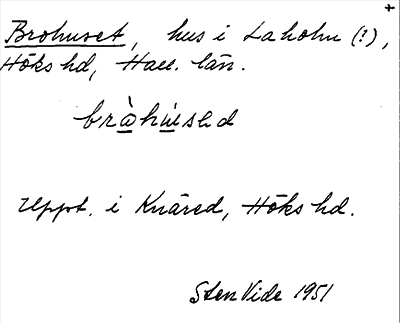 +
Brohuset, hus i Laholm (?),
Höks hd, Hall. län.
bràhu̇sɘd
Uppt. i Knäred, Höks hd.
Sten Vide 1951